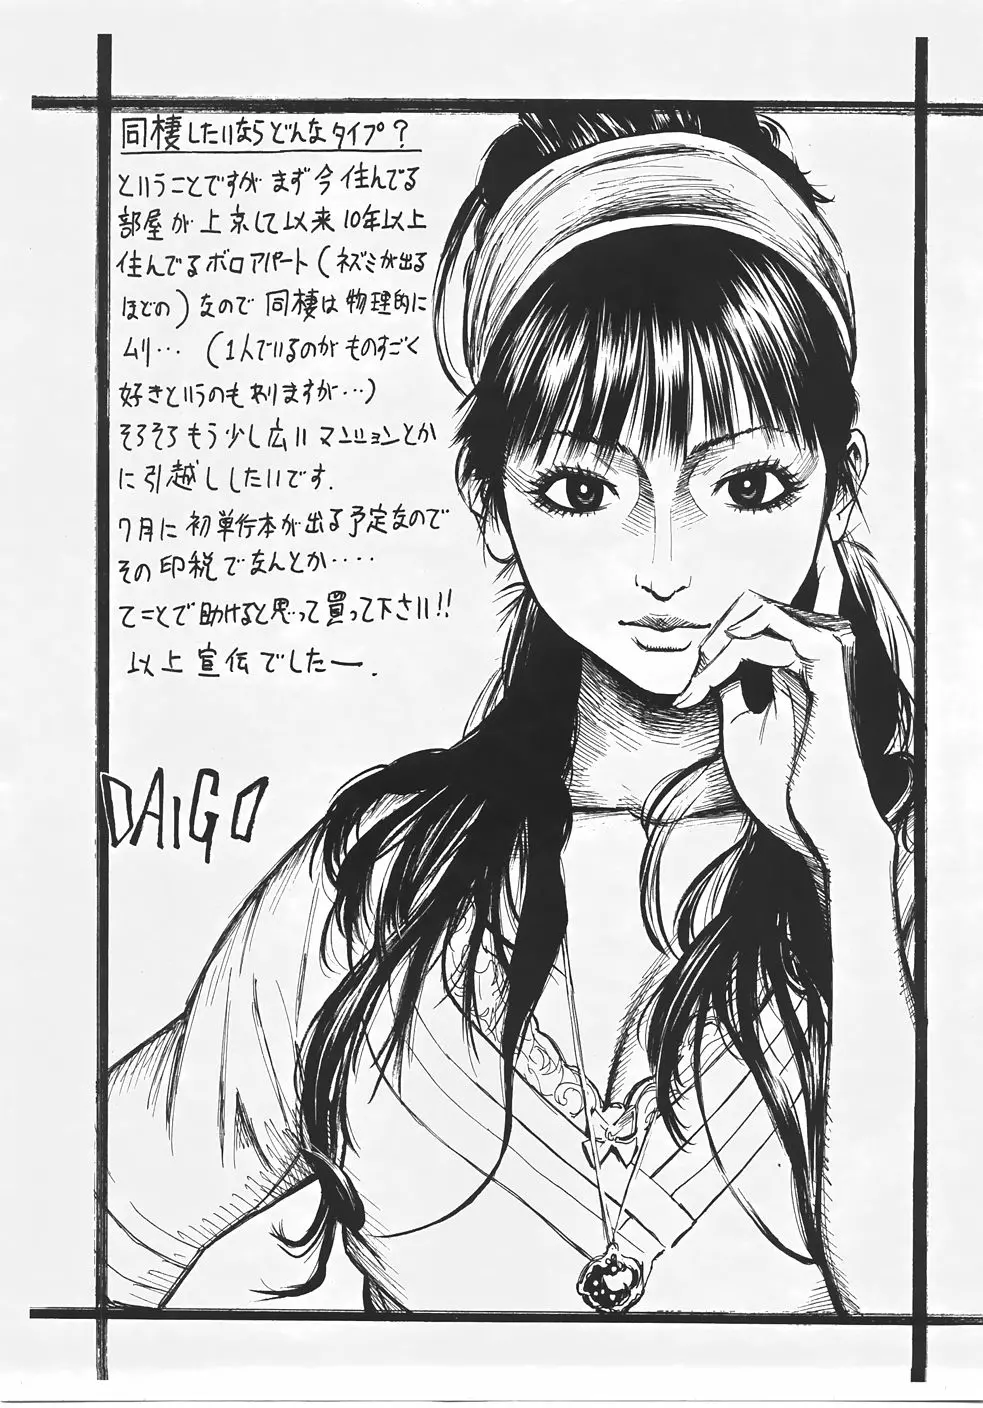 同棲したいならどんなタイプ？
ということですが まず今住んでる
部屋が上京して以来10年以上
住んでるボロアパート(ネズミが出る
ほどの)なので 同棲は物理的に
ムリ… (1人でいるのがものすごく
好きというのもありますが…)
そろそろもう少し広いマンションとか
に引越ししたいです.
7月に初単行本が出る予定なので
その印税でなんとか‥‥
てことで助けると思って買って下さい!!
以上宣伝でしたー.
DAIGO